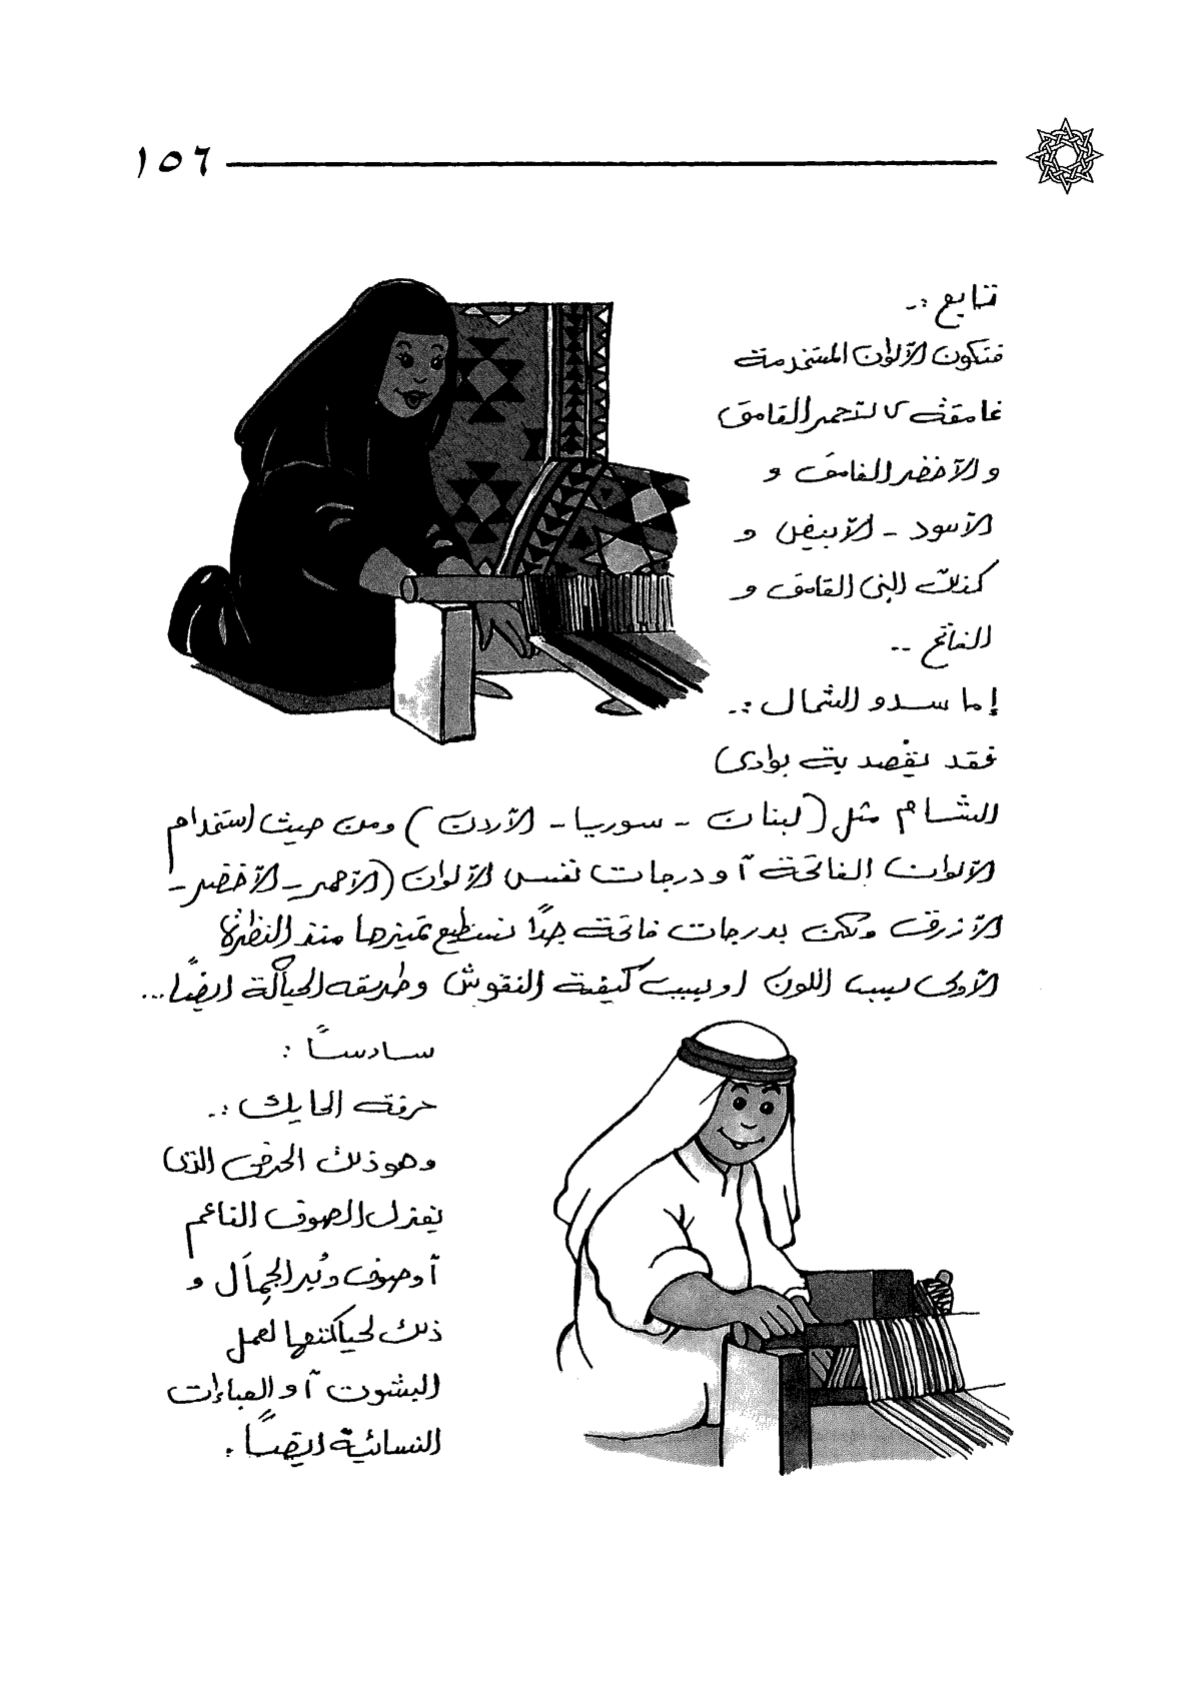 ١٥٦
تابع :-
فتكون الألوان المستخدمة
غامقة كالأحمر الغامق
و الأخضر الغامق و
الأسود - الأبيض و
كذلك البنى الغامق و
الفاتح --
إما سدو الشمال :-
فقد يقصد به بوادى
الشام مثل ( لبنان - سوريا - الأردن ) ومن حيث استخدام
الألوان الفاتحة أو درجات نفس الألوان ( الأحمر - الأخضر -
الأزرق ولكن بدرجات فاتحة جداً نستطيع تميزها منذ النظرة
الأولى بسبب اللون او بسبب كيفية النقوش وطريقه الحياكة ايضًا...
سادساً :
حرفة الحايك :-
وهو ذلك الحرفى الذى
يغزل الصوف الناعم
أو صوف وبر الجمال و
ذلك لحياكتها لعمل
البشوت أو العباءات
النسائية ايضاً .